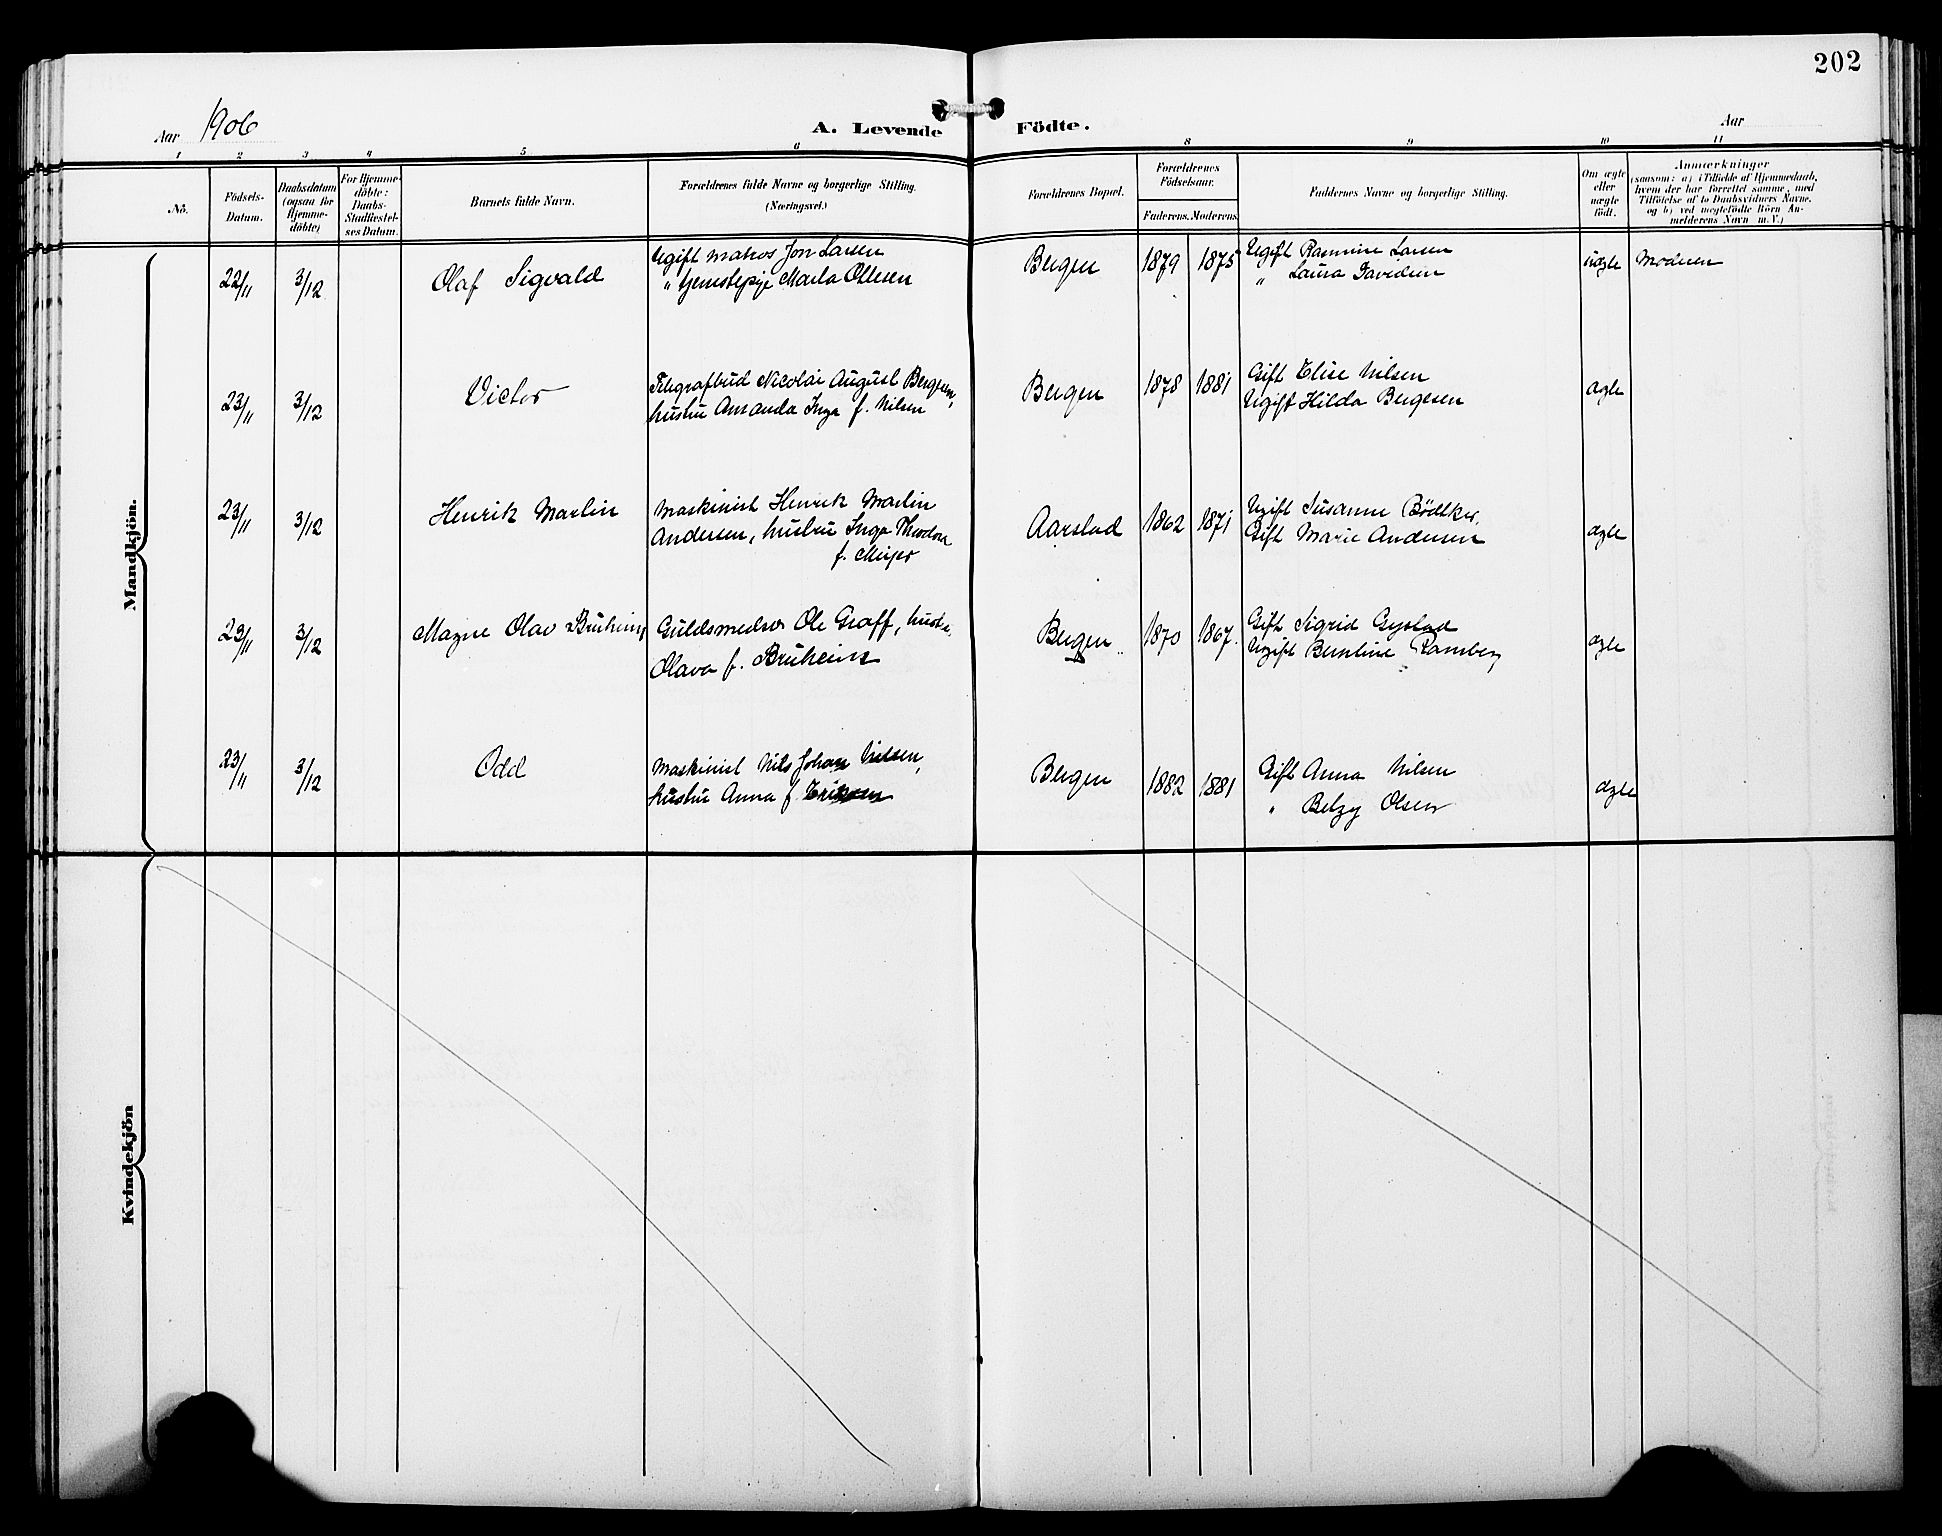 202
Aar 1906
A. Levende Födte.
Aar
1 2 3 4 5 6 8 9 10 11
No.
Födsels-
Datum.
Daabsdatum
(ogsaa for
Hjemme-
döbte)
For Hjemme-
döbte:
Daabs-
Stadfæstel-
ses Datum.
Barnets fulde Navn.
Forældrenes fulde Navne og borgerlige Stilling.
(Næringsvei.)
Forældrenes Bopæl.
Forældrenes
Födselsaar.
Faderens. Moderens.
Faddernes Navne og borgerlige Stilling.
Om ægte
eller
uægte
födt.
Anmærkninger
(saasom: a) i Tilfælde af Hjemmedaab,
hvem der har forrettet samme, med
Tilföielse af to Daabsvidners Navne,
og b) ved uægtefödte Börn An-
melderens Navn m. V.)
Mandkjön.
22/11 3/12 Olaf Sigvald
Ugift matros Jon Larsen
" tjenestepige Marta Ottesen
Bergen 1879 1875
Ugift Rasmine Larsen
" Laura Davidsen
uægte Moderen
23/11 3/12 Victor
Telegrafbud Nicolai August Bergesen,
hustru Amanda Inga f. Nilsen
Bergen 1878 1881
Gift Elise Nilsen
Ugift Hilda Bergesen
ægte
23/11 3/12 Henrik Martin
Maskinist Henrik Martin
Andersen, hustru Inga Theodora
f. Meijer
Aarstad 1862 1871
Ugift Susanne Bödtker.
Gift Marie Andersen
ægte
23/11 3/12 Magne Olav Bruheim
Guldsmedsv Ole Graff, hustru
Olava f. Bruheim
Bergen 1870 1867.
Gift Sigrid
Ugift Bentine Ramberg
ægte
23/11 3/12 Odd
Maskinist Nils Johan Nilsen,
hustru Anna f. Eriksen
Bergen 1882 1881
Gift Anna Nilsen
" Betzy Olsen
ægte
Kvindekjön